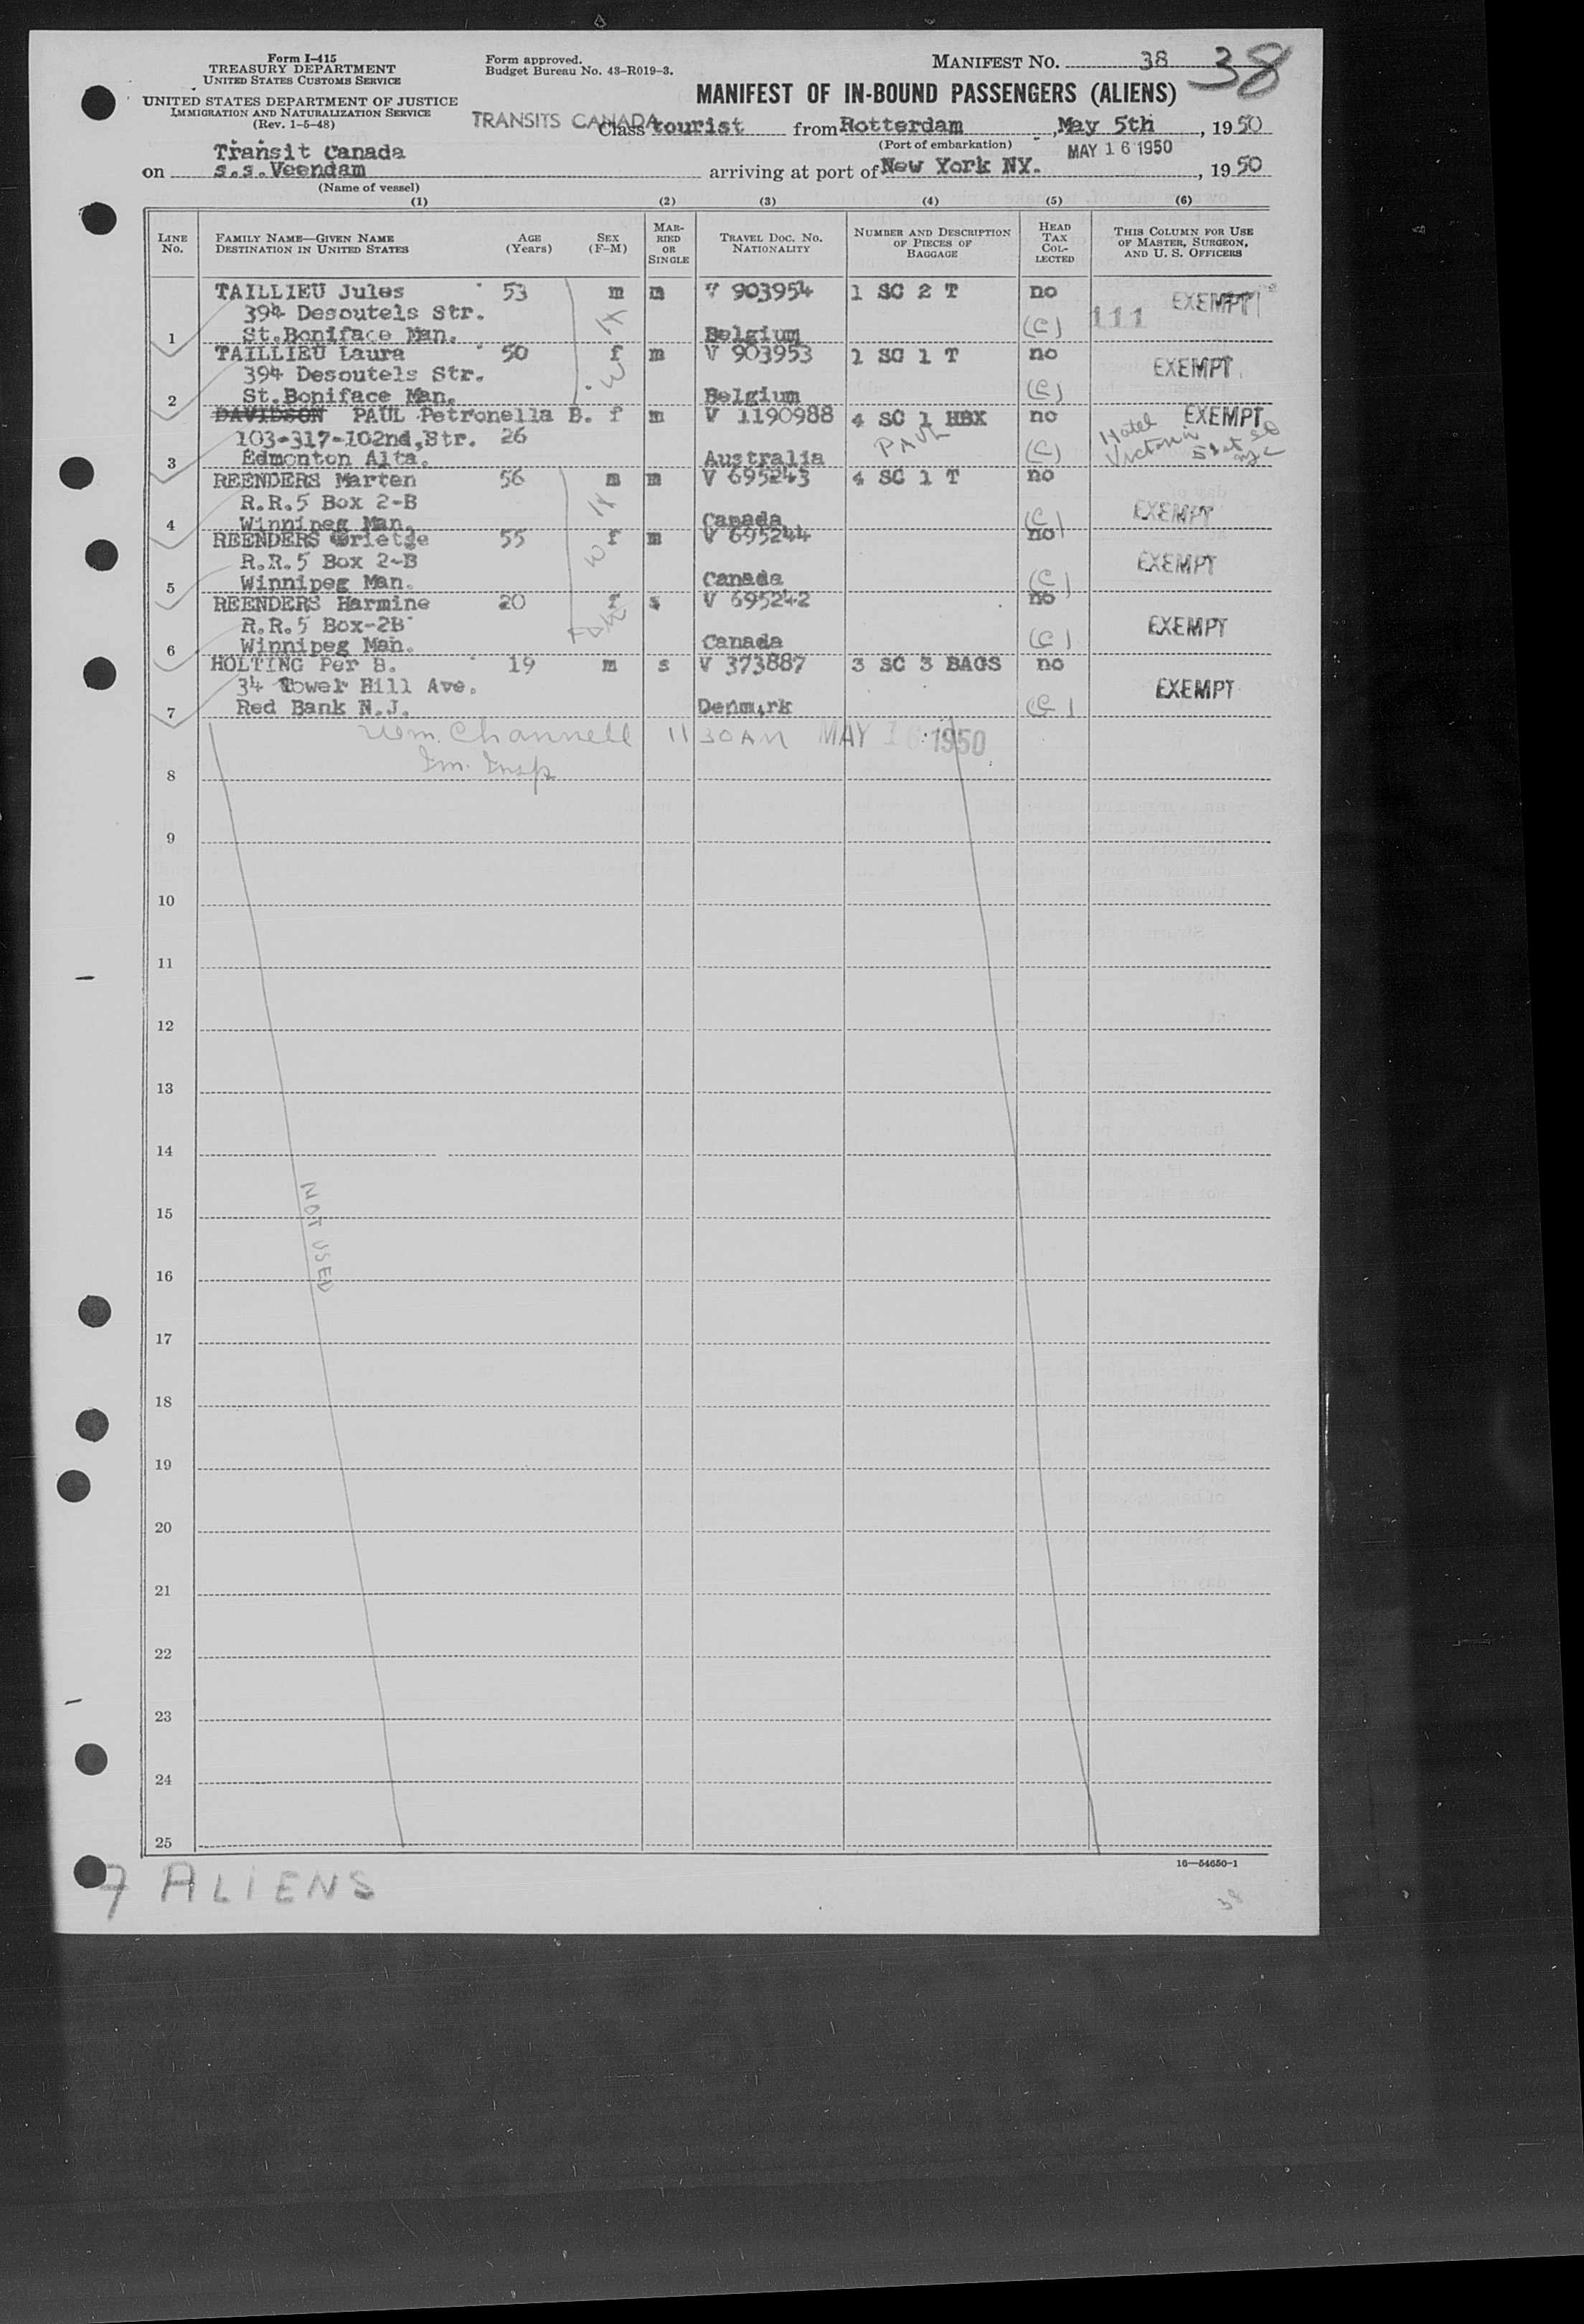 Form I-415
TREASURY DEPARTMENT
UNITED STATES CUSTOMS SERVICE
UNITED STATES DEPARTMENT OF JUSTICE
IMMIGRATION AND NATURALIZATION SERVICE
(Rev. 1-5-48)
Form approved.
Budget Bureau No. 43-R019-3.
MANIFEST NO. 38 38
MANIFEST OF IN-BOUND PASSENGERS (ALIENS)
TRANSITS CANADA
Class tourist from Rotterdam, May 5th, 1950
(Port of embarkation)
Transit Canada
MAY 16 1950
on s.s. Veendam arriving at port of New York NY., 1950
(Name of vessel)
(1) (2) (3) (4) (5) (6)
LINE No. FAMILY NAME—GIVEN NAME DESTINATION IN UNITED STATES AGE (Years) SEX (F-M) MARRIED OR SINGLE TRAVEL DOC. NO. NATIONALITY NUMBER AND DESCRIPTION OF PIECES OF BAGGAGE HEAD TAX COLLECTED THIS COLUMN FOR USE OF MASTER, SURGEON, AND U. S. OFFICERS
TAILLIEU Jules 53 m m V 903954 1 SC 2 T no EXEMPT
394 Desoutels Str. 111
1 St.Boniface Man. Belgium (C)
TAILLIEU Laura 50 f m V 903953 1 SC 1 T no EXEMPT
394 Desoutels Str.
2 St.Boniface Man. Belgium (C)
DAVIDSON PAUL Petronella B. f m V 1190988 4 SC 1 HBX no EXEMPT
103-317-102nd,Str. 26 PAUL Hotel Victoria
3 Edmonton Alta. Australia (C) 51st
REENDERS Marten 56 m m V 695243 4 SC 1 T no
R.R.5 Box 2-B EXEMPT
4 Winnipeg Man. Canada (C)
REENDERS Grietje 55 f m V 695244 no
R.R.5 Box 2-B EXEMPT
5 Winnipeg Man. Canada (C)
REENDERS Harmine 20 f s V 695242 no
R.R.5 Box-2B EXEMPT
6 Winnipeg Man. Canada (C)
HOLTING Per B. 19 m s V 373887 3 SC 3 BAGS no
34 Tower Hill Ave. EXEMPT
7 Red Bank N.J. Denmark (C)
Wm. Channell 11 30 AM MAY 16 1950
Im. Insp
8
9
10
11
12
13
14
15
NOT USED
16
17
18
19
20
21
22
23
24
25
16—54650-1
7 ALIENS
38